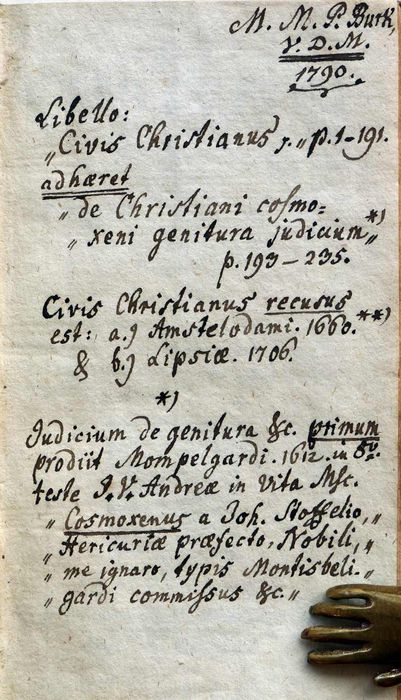 M. M. P. Burk,
V. D. M.
1790.
Libello:
„Civis Christianus, „ p. 1-191.
adhæret
„de Christiani cosmo=
„xeni genitura judicium„ *)
p. 193 – 235.
Civis Christianus recusus
est: a.) Amstelodami. 1660. **)
& b.) Lipsiæ. 1706.
*)
Judicium de genitura &c. primum
prodiit Mompelgardi. 1612. in 8v.
teste J. V. Andreæ in Vita Msc.
„Cosmoxenus a Joh. Stoffelio, „
„Hericuriæ præfecto, Nobili, „
„me ignaro, typis Montisbeli- „
„gardi commissus &c. „